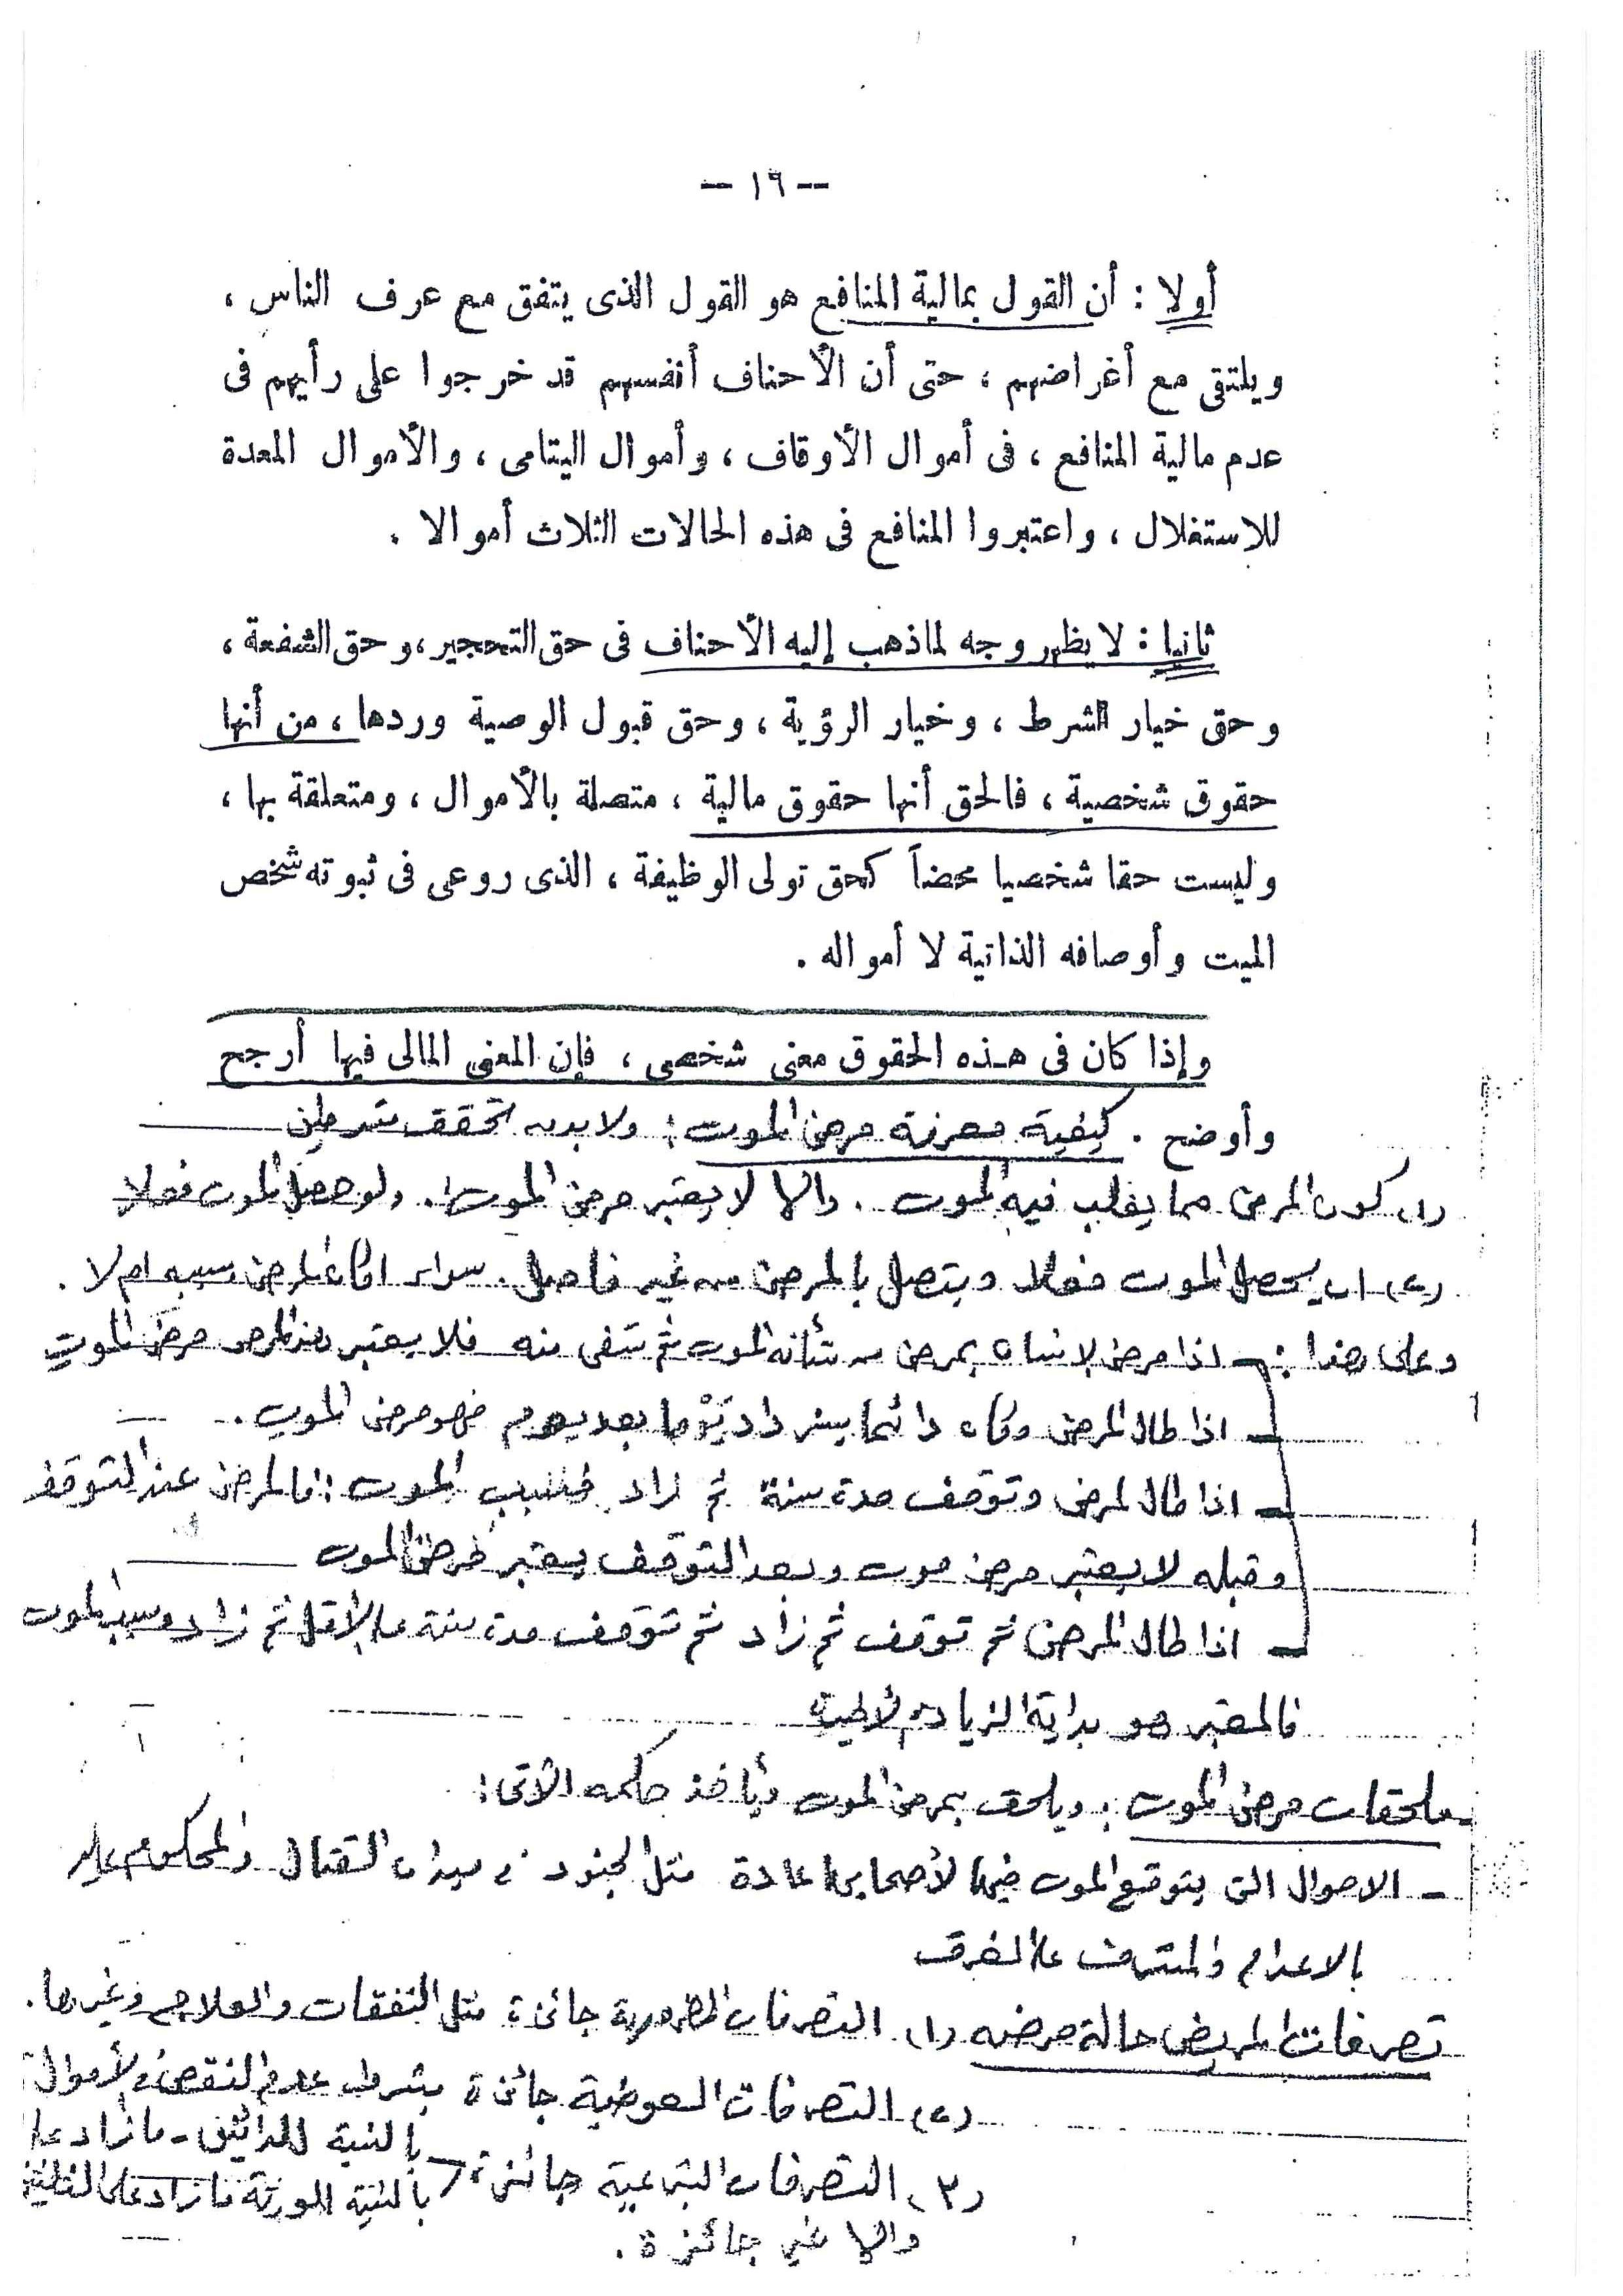 -- ١٦ --
أولا : أن القول بمالية المنافع هو القول الذى يتفق مع عرف الناس ،
ويلتقى مع أغراضهم ، حتى أن الأحناف أنفسهم قد خرجوا على رأيهم فى
عدم مالية المنافع ، فى أموال الأوقاف ، وأموال اليتامى ، والأموال المعدة
للاستغلال ، واعتبروا المنافع فى هذه الحالات الثلاث أموالا .
ثانيا : لا يظهر وجه لما ذهب إليه الأحناف فى حق التحجير، وحق الشفعة ،
وحق خيار الشرط ، وخيار الرؤية ، وحق قبول الوصية وردها ، من أنها
حقوق شخصية ، فالحق أنها حقوق مالية ، متصلة بالأموال ، ومتعلقة بها ،
وليست حقا شخصيا محضاً كحق تولى الوظيفة ، الذى روعى فى ثبوته شخص
الميت وأوصافه الذاتية لا أمواله .
وإذا كان فى هذه الحقوق معنى شخصى ، فإن المعنى المالى فيها أرجح
وأوضح . كيفية معرفة مرض الموت : ولابد من تحقق شرطين
(١) كون المرض مما يغلب فيه الموت . والا لا يعتبر مرض الموت . ولو حصل الموت فعلا
(٢) ان يحصل الموت فعلا ويتصل بالمرض من غير فاصل . سواء اكان المرض سببه ام لا .
وعلى هذا : - اذا مرض الانسان بمرض من شأنه الموت ثم شفى منه فلا يعتبر هذا المرض مرض الموت
- اذا طال المرض وكان دائما يزداد يوما بعد يوم فهو مرض الموت .
- اذا طال المرض وتوقف مدة سنة ثم زاد فسبب الموت : فالمرض عند التوقف
وقبله لا يعتبر مرض موت وبعد التوقف يعتبر مرض الموت
- اذا طال المرض ثم توقف ثم زاد ثم توقف مدة سنة على الأقل ثم زاد وسبب الموت
فالمعتبر هو بداية الزيادة الأخيرة
ملحقات مرض الموت : ويلحق بمرض الموت ويأخذ حكمه الآتى :
- الاحوال التى يتوقع الموت فيها لأصحابها عادة مثل الجنود فى ميدان القتال والمحكوم عليه
بالاعدام والمشرف على الغرق
تصرفات المريض حالة مرضه (١) التصرفات الضرورية جائزة مثل النفقات والعلاج وغيرها .
(٢) التصرفات العوضية جائزة بشرط عدم النقص فى الأموال
(٣) التصرفات التبرعية جائزة بالنسبة للدائنين - ما زاد على
بالنسبة للورثة ما زاد على الثلث
والا غير جائزة .